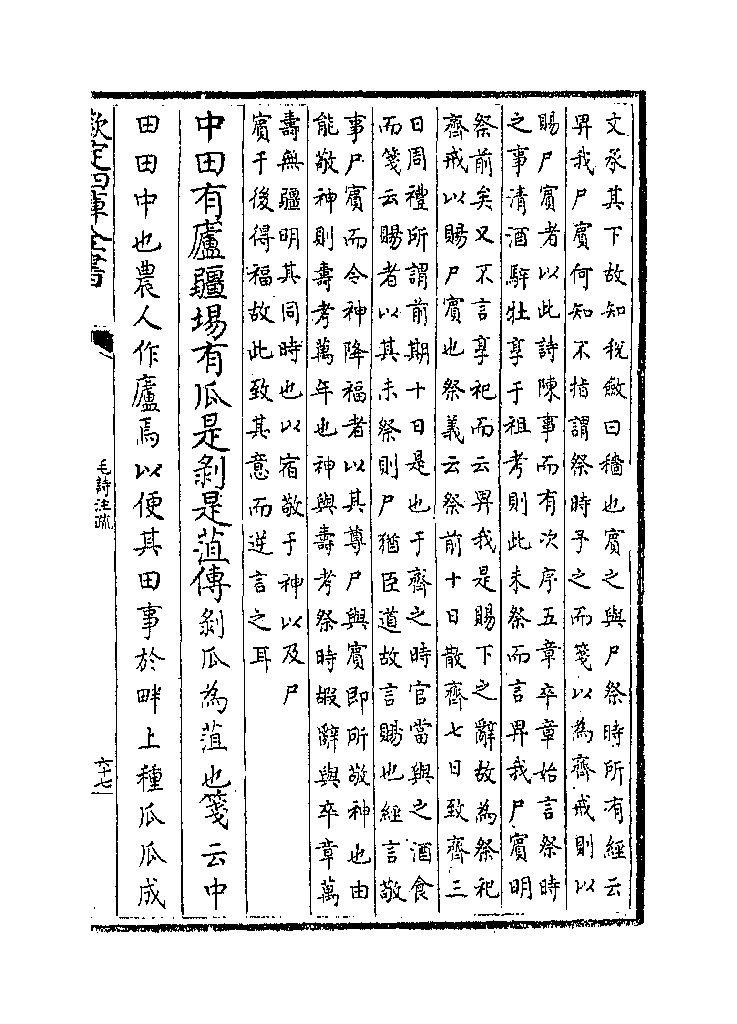 文承其下故知稅斂曰穡也賓之與尸祭時所有經云
畀我尸賓何知不指謂祭時予之而箋以為齊戒則以
賜尸賓者以此詩陳事而有次序五章卒章始言祭時
之事清酒騂牡享于祖考則此未祭而言畀我尸賓明
祭前矣又不言享祀而云畀我是賜下之辭故為祭祀
齊戒以賜尸賓也祭義云祭前十日散齊七日致齊三
日周禮所謂前期十日是也于齊之時官當與之酒食
而箋云賜者以其未祭則尸猶臣道故言賜也經言敬
事尸賓而令神降福者以其尊尸與賓即所敬神也由
能敬神則壽考萬年也神與壽考祭時嘏辭與卒章萬
壽無疆明其同時也以宿敬于神以及尸
賓于後得福故此致其意而逆言之耳
中田有廬疆埸有瓜是剝是菹傳剝瓜為菹也箋云中
田田中也農人作廬焉以便其田事於畔上種瓜瓜成
欽定四庫全書
毛詩注疏
六十七